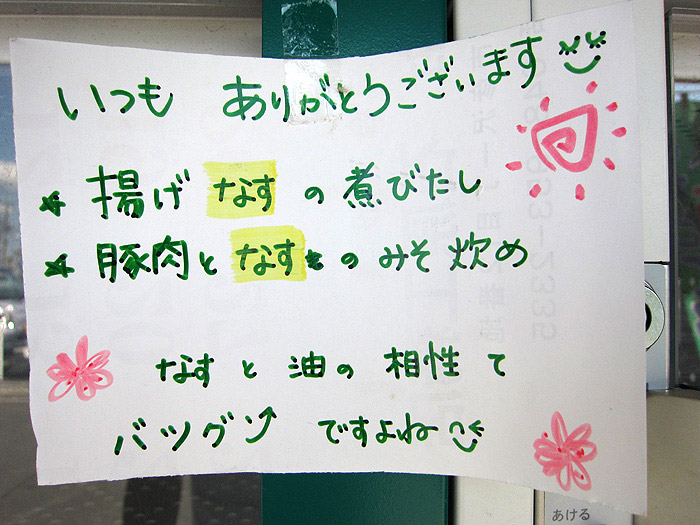 いつも ありがとうございます
★ 揚げ なす の 煮びたし
★ 豚肉と なす の みそ 炊め
なす と 油の 相性 て
バツグン ですよね
あける